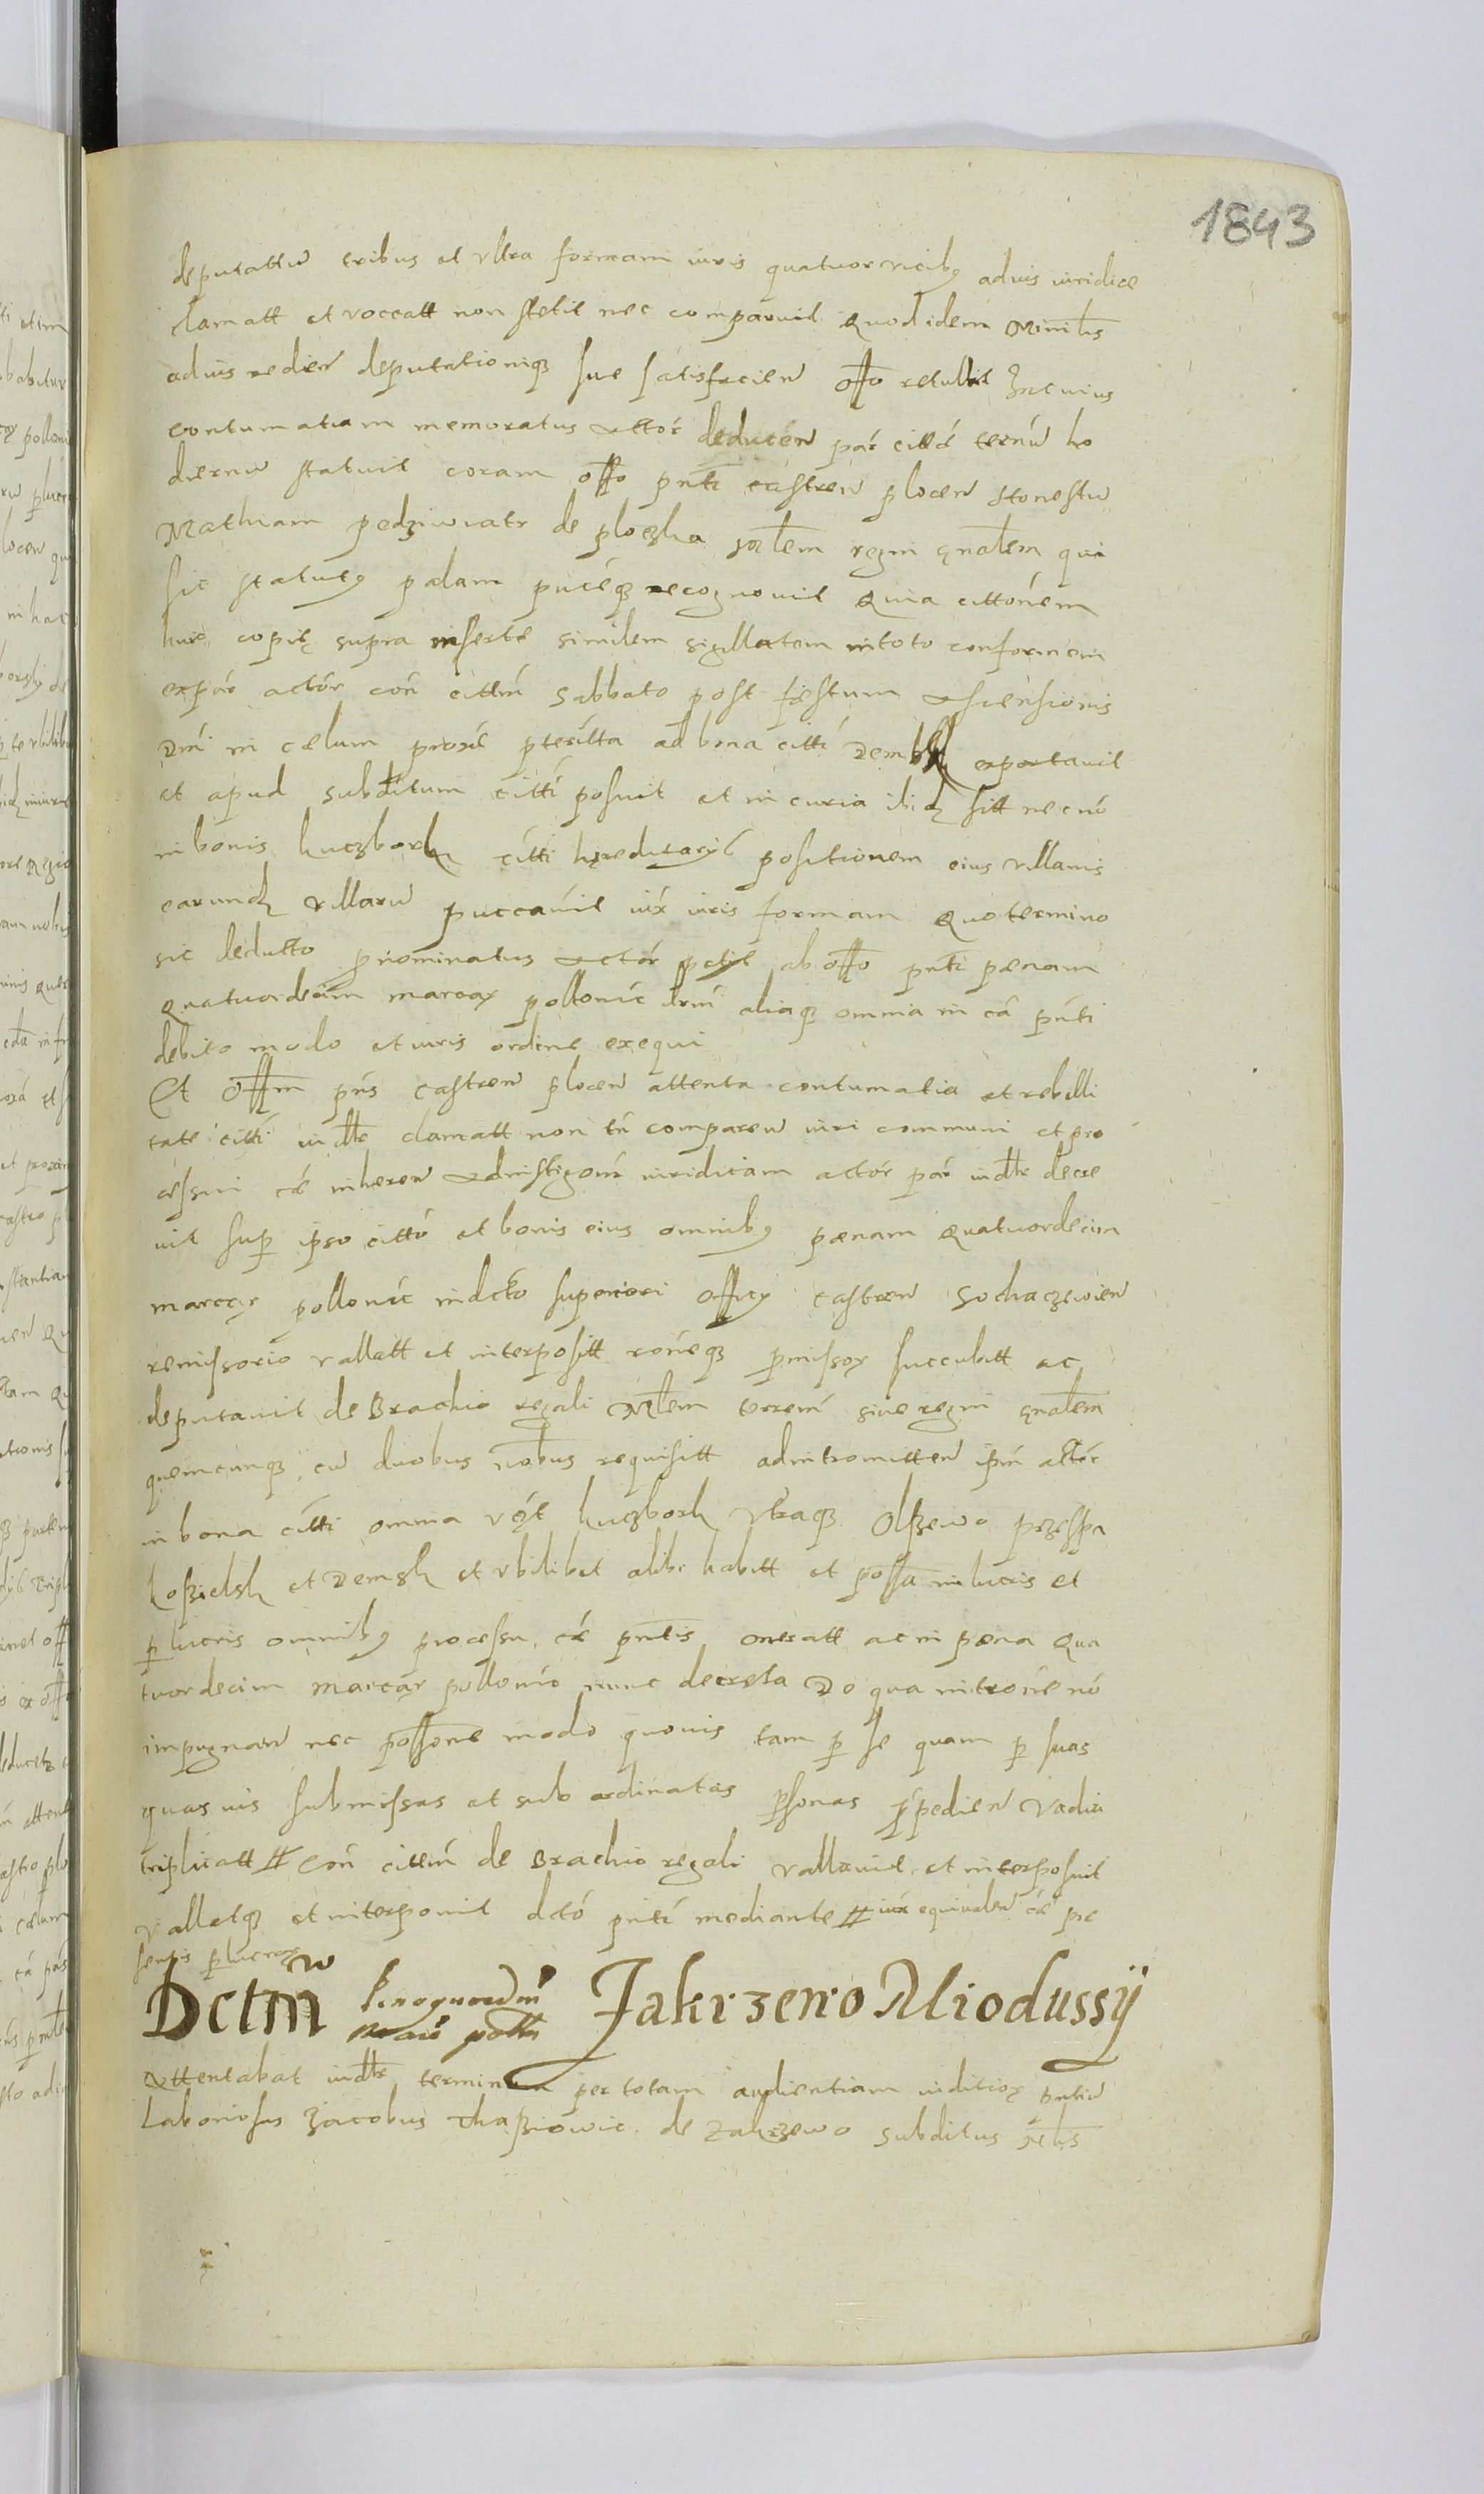 1843
deputattu tribus et vltra formam iuris quatuor vicibq aduis iuridice
clamatt et voccatt non stetit nec comparuit Quod idem Minirls
aduis redien deputationiq sue satisfacien offo retulit In cuius
contumatiam memoratus Actor deducen par citta ternu ho
diernu statuit coram offo pnti castren plocen Honestu
Mathiam pedziwiatr de ploczka mrlem regni gnalem qui
sic statutq palam puceq recognouit Quia cittonem
huic copię supra inserte similem sigillatam in toto conformem
ex par actor con cittm Sabbato post festum Ascensionis
Dni in cælum proxe pteritta ad bona citti Demb exportauit
et apud subditum citti posuit et in curia ibid sitt necno
in bonis kuczbork citti hęreditarys positionem eius villanis
earund villaru puccauit iux iuris formam Quo termino
sic dedutto pnominatus Actor petit ab offo pnti pænam
Quatuordecim marcar pollonic lrm aliaq omnia in ca pnti
debito modo et iuris ordine exequi
Et Offm pns castren plocen attenta contumatia et rebelli
tate citti iudtr clamatt non tn comparen iuri communi et pro
cessui ce inheren Ad instigom iuridicam actor par iudtr decre
uit sup ipso citto et bonis eius omnibq pænam Quatuordecim
marcar pollonic in dcto superiori Officy castren Sochaczewien
remissorio vallatt et interpositt roneq pmissor succubitt ac
deputauit de Brachio regali Mrlem terrem siue regni gnalem
quemcunq cu duobus nobus requisitt ad intromitten ipm actor
in bona citti omnia vgt kuczbork vtraq Olszewo przespa
koziclsk et Demsk et vbilibet alibi habitt et possa in lucris et
p lucris omnibq processu ce pntis oneratt ac in pæna Qua
tuordecim marcar pollonic nunc decreta Do qua introne no
impugnan nec possone modo quouis tam p se quam p suas
quas uis submissas et sub ordinatas psonas pspedien vadiu
triplicatt # con cittm de Brachio regali vallauit et interposuit
vallatq et interponit dcto pnti mediante # iux equiualen ce pre
sentis p lucror
Dctm Jakrzewo Miodussÿ
Attentabat iudtr terminum per totam audientiam iuditior pntiu
Laboriosus Jacobus de Zakrzewo subditus